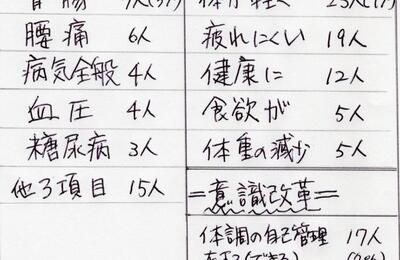 腰痛 6人
病気全般 4人
血圧 4人
糖尿病 3人
他3項目 15人
疲れにくい 19人
健康に 12人
食欲が 5人
体重の減少 5人
=意識改革=
体調の自己管理 17人